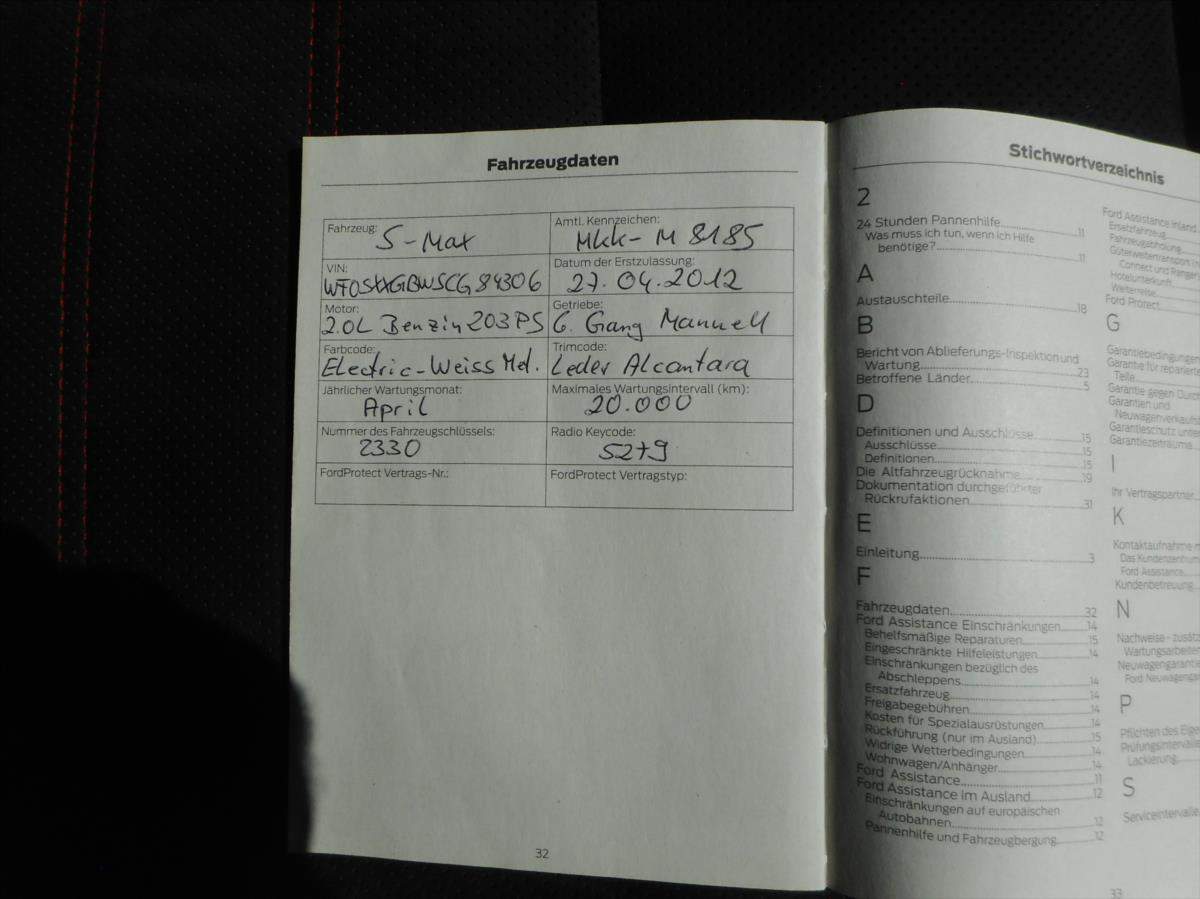 Fahrzeugdaten
Fahrzeug: S-Max
Amtl. Kennzeichen: MKK-M 8185
VIN: WF0SXXGBWSCG84306
Datum der Erstzulassung: 27.04.2012
Motor: 2.0L Benzin 203PS
Getriebe: 6. Gang Manuell
Farbcode: Electric-Weiss Met.
Trimcode: Leder Alcantara
Jährlicher Wartungsmonat: April
Maximales Wartungsintervall (km): 20.000
Nummer des Fahrzeugschlüssels: 2330
Radio Keycode: 5279
FordProtect Vertrags-Nr.:
FordProtect Vertragstyp:
32
Stichwortverzeichnis
2
24 Stunden Pannenhilfe 11
Was muss ich tun, wenn ich Hilfe
benötige? 11
A
Austauschteile 18
B
Bericht von Ablieferungs-Inspektion und
Wartung 23
Betroffene Länder 5
D
Definitionen und Ausschlüsse 15
Ausschlüsse 15
Definitionen 15
Die Altfahrzeugrücknahme 19
Dokumentation durchgeführter
Rückrufaktionen 31
E
Einleitung 3
F
Fahrzeugdaten 32
Ford Assistance Einschränkungen 14
Behelfsmäßige Reparaturen 15
Eingeschränkte Hilfeleistungen 14
Einschränkungen bezüglich des
Abschleppens 14
Ersatzfahrzeug 14
Freigabegebühren 14
Kosten für Spezialausrüstungen 14
Rückführung (nur im Ausland) 15
Widrige Wetterbedingungen 14
Wohnwagen/Anhänger 14
Ford Assistance 11
Ford Assistance im Ausland 12
Einschränkungen auf europäischen
Autobahnen 12
Pannenhilfe und Fahrzeugbergung 12
Ford Assistance Inland
Ersatzfahrzeug
Fahrzeugabholung
Güterweitentransport
Connect und Ranger
Hotelunterkunft
Weiterreise
Ford Protect
G
Garantiebedingungen
Garantie für reparierte
Teile
Garantie gegen
Garantien und
Neuwagenverkaufs
Garantieschutz
Garantiezeiträume
I
Ihr Vertragspartner
K
Kontaktaufnahme
Das Kundenzentrum
Ford Assistance
Kundenbetreuung
N
Nachweise - zusätz
Wartungsarbeiten
Neuwagengarantie
Ford Neuwagen
P
Pflichten des
Prüfungsintervall
Lackierung
S
Serviceintervalle
33